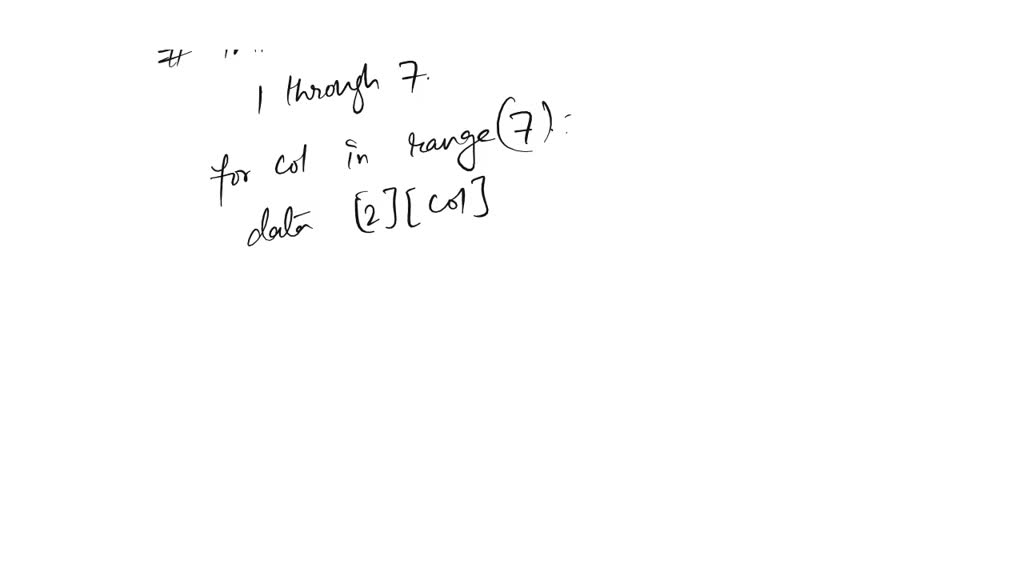 #
1 through 7.
for col in range(7):
data [2][col]